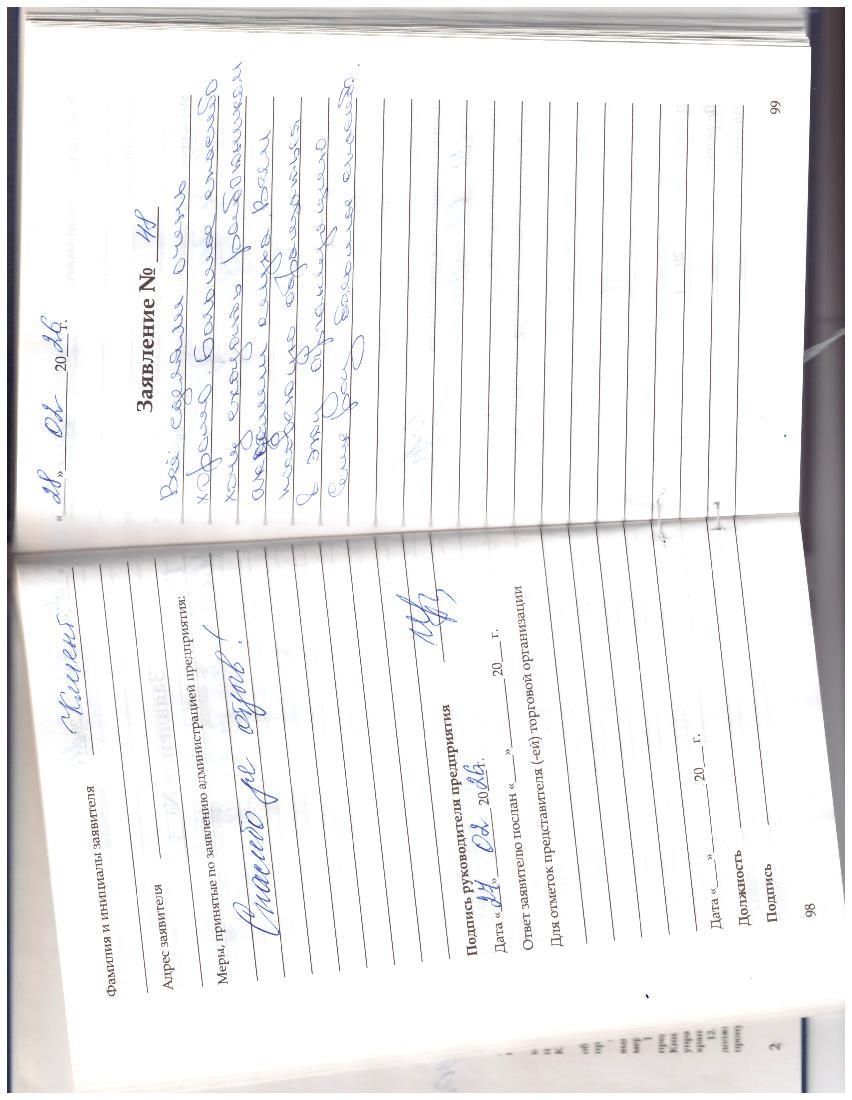 Фамилия и инициалы заявителя Клиент
Адрес заявителя
Меры, принятые по заявлению администрацией предприятия:
Спасибо за отзыв!
Подпись руководителя предприятия
Дата «27» 02 2026г.
Ответ заявителю послан «___»________20___г.
Для отметок представителя (-ей) торговой организации
Дата «___»________20___г.
Должность
Подпись
98
«28» 02 2026г.
Заявление № 48
Всё сделали очень
хорошо Большое спасибо
хочу сказать работникам
всем
советую обращаться
в эту организацию
Еще раз большое спасибо.
99
2